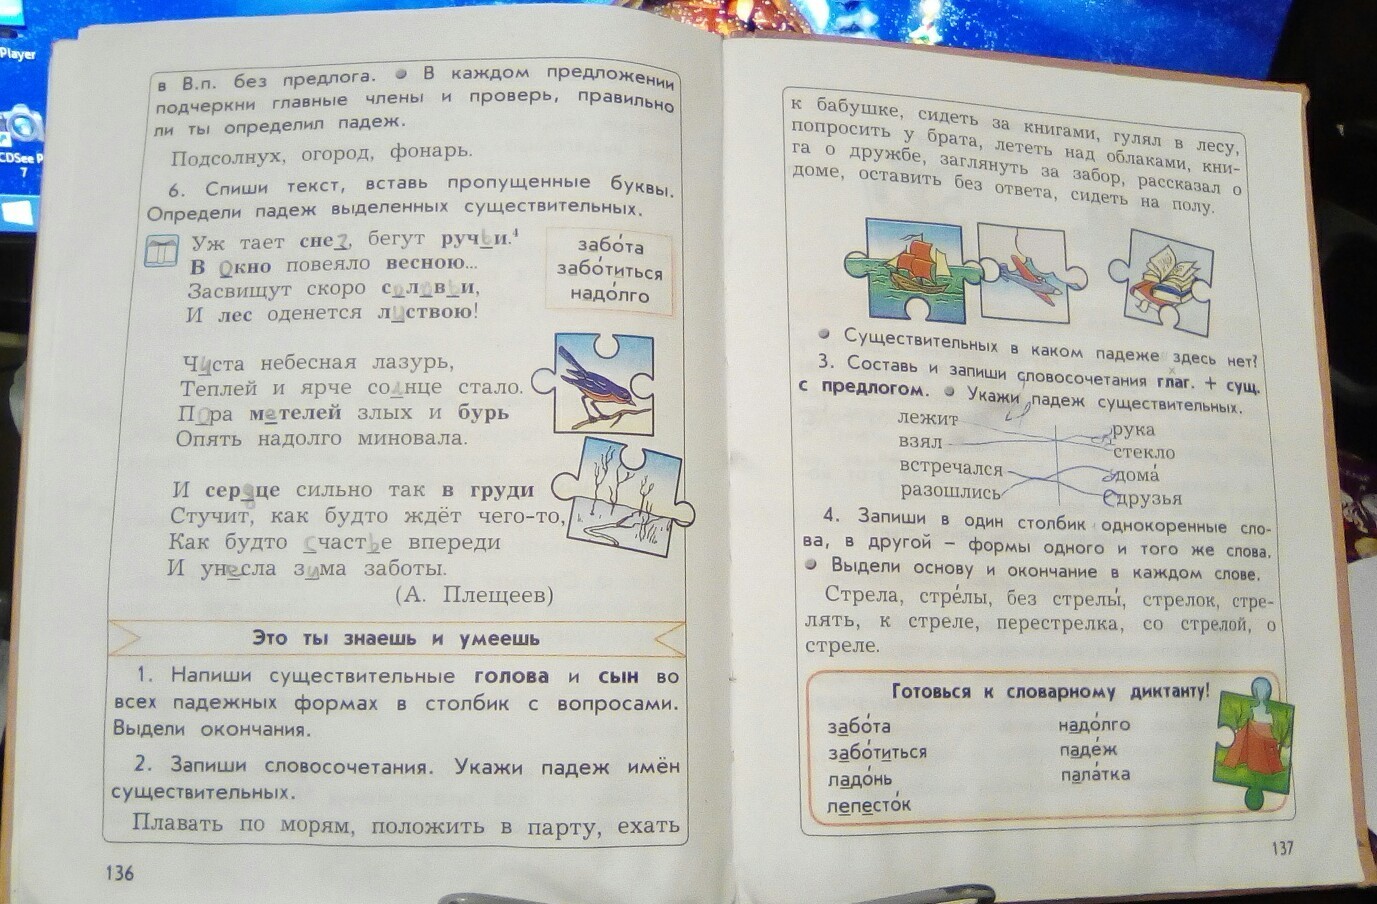 Player
CDSee P
7
в В.п. без предлога. ● В каждом предложении
подчеркни главные члены и проверь, правильно
ли ты определил падеж.
Подсолнух, огород, фонарь.
6. Спиши текст, вставь пропущенные буквы.
Определи падеж выделенных существительных.
Уж тает снег, бегут ручьи.⁴
В окно повеяло весною...
Засвищут скоро соловьи,
И лес оденется листвою!
забо́та
забо́титься
надо́лго
Чиста небесная лазурь,
Теплей и ярче солнце стало.
Пора метелей злых и бурь
Опять надолго миновала.
И сердце сильно так в груди
Стучит, как будто ждёт чего-то,
Как будто счастье впереди
И унесла зима заботы.
(А. Плещеев)
Это ты знаешь и умеешь
1. Напиши существительные голова и сын во
всех падежных формах в столбик с вопросами.
Выдели окончания.
2. Запиши словосочетания. Укажи падеж имён
существительных.
Плавать по морям, положить в парту, ехать
136
к бабушке, сидеть за книгами, гулял в лесу,
попросить у брата, лететь над облаками, кни-
га о дружбе, заглянуть за забор, рассказал о
доме, оставить без ответа, сидеть на полу.
● Существительных в каком падеже здесь нет?
3. Составь и запиши словосочетания глаг. + сущ.
с предлогом. ● Укажи падеж существительных.
лежит
взял
встречался
разошлись
рука
стекло
дома́
друзья
4. Запиши в один столбик однокоренные сло-
ва, в другой – формы одного и того же слова.
● Выдели основу и окончание в каждом слове.
Стрела, стре́лы, без стрелы́, стрелок, стре-
лять, к стреле, перестрелка, со стрелой, о
стреле.
Готовься к словарному диктанту!
забо́та
забо́титься
ладо́нь
лепесто́к
надо́лго
паде́ж
пала́тка
137